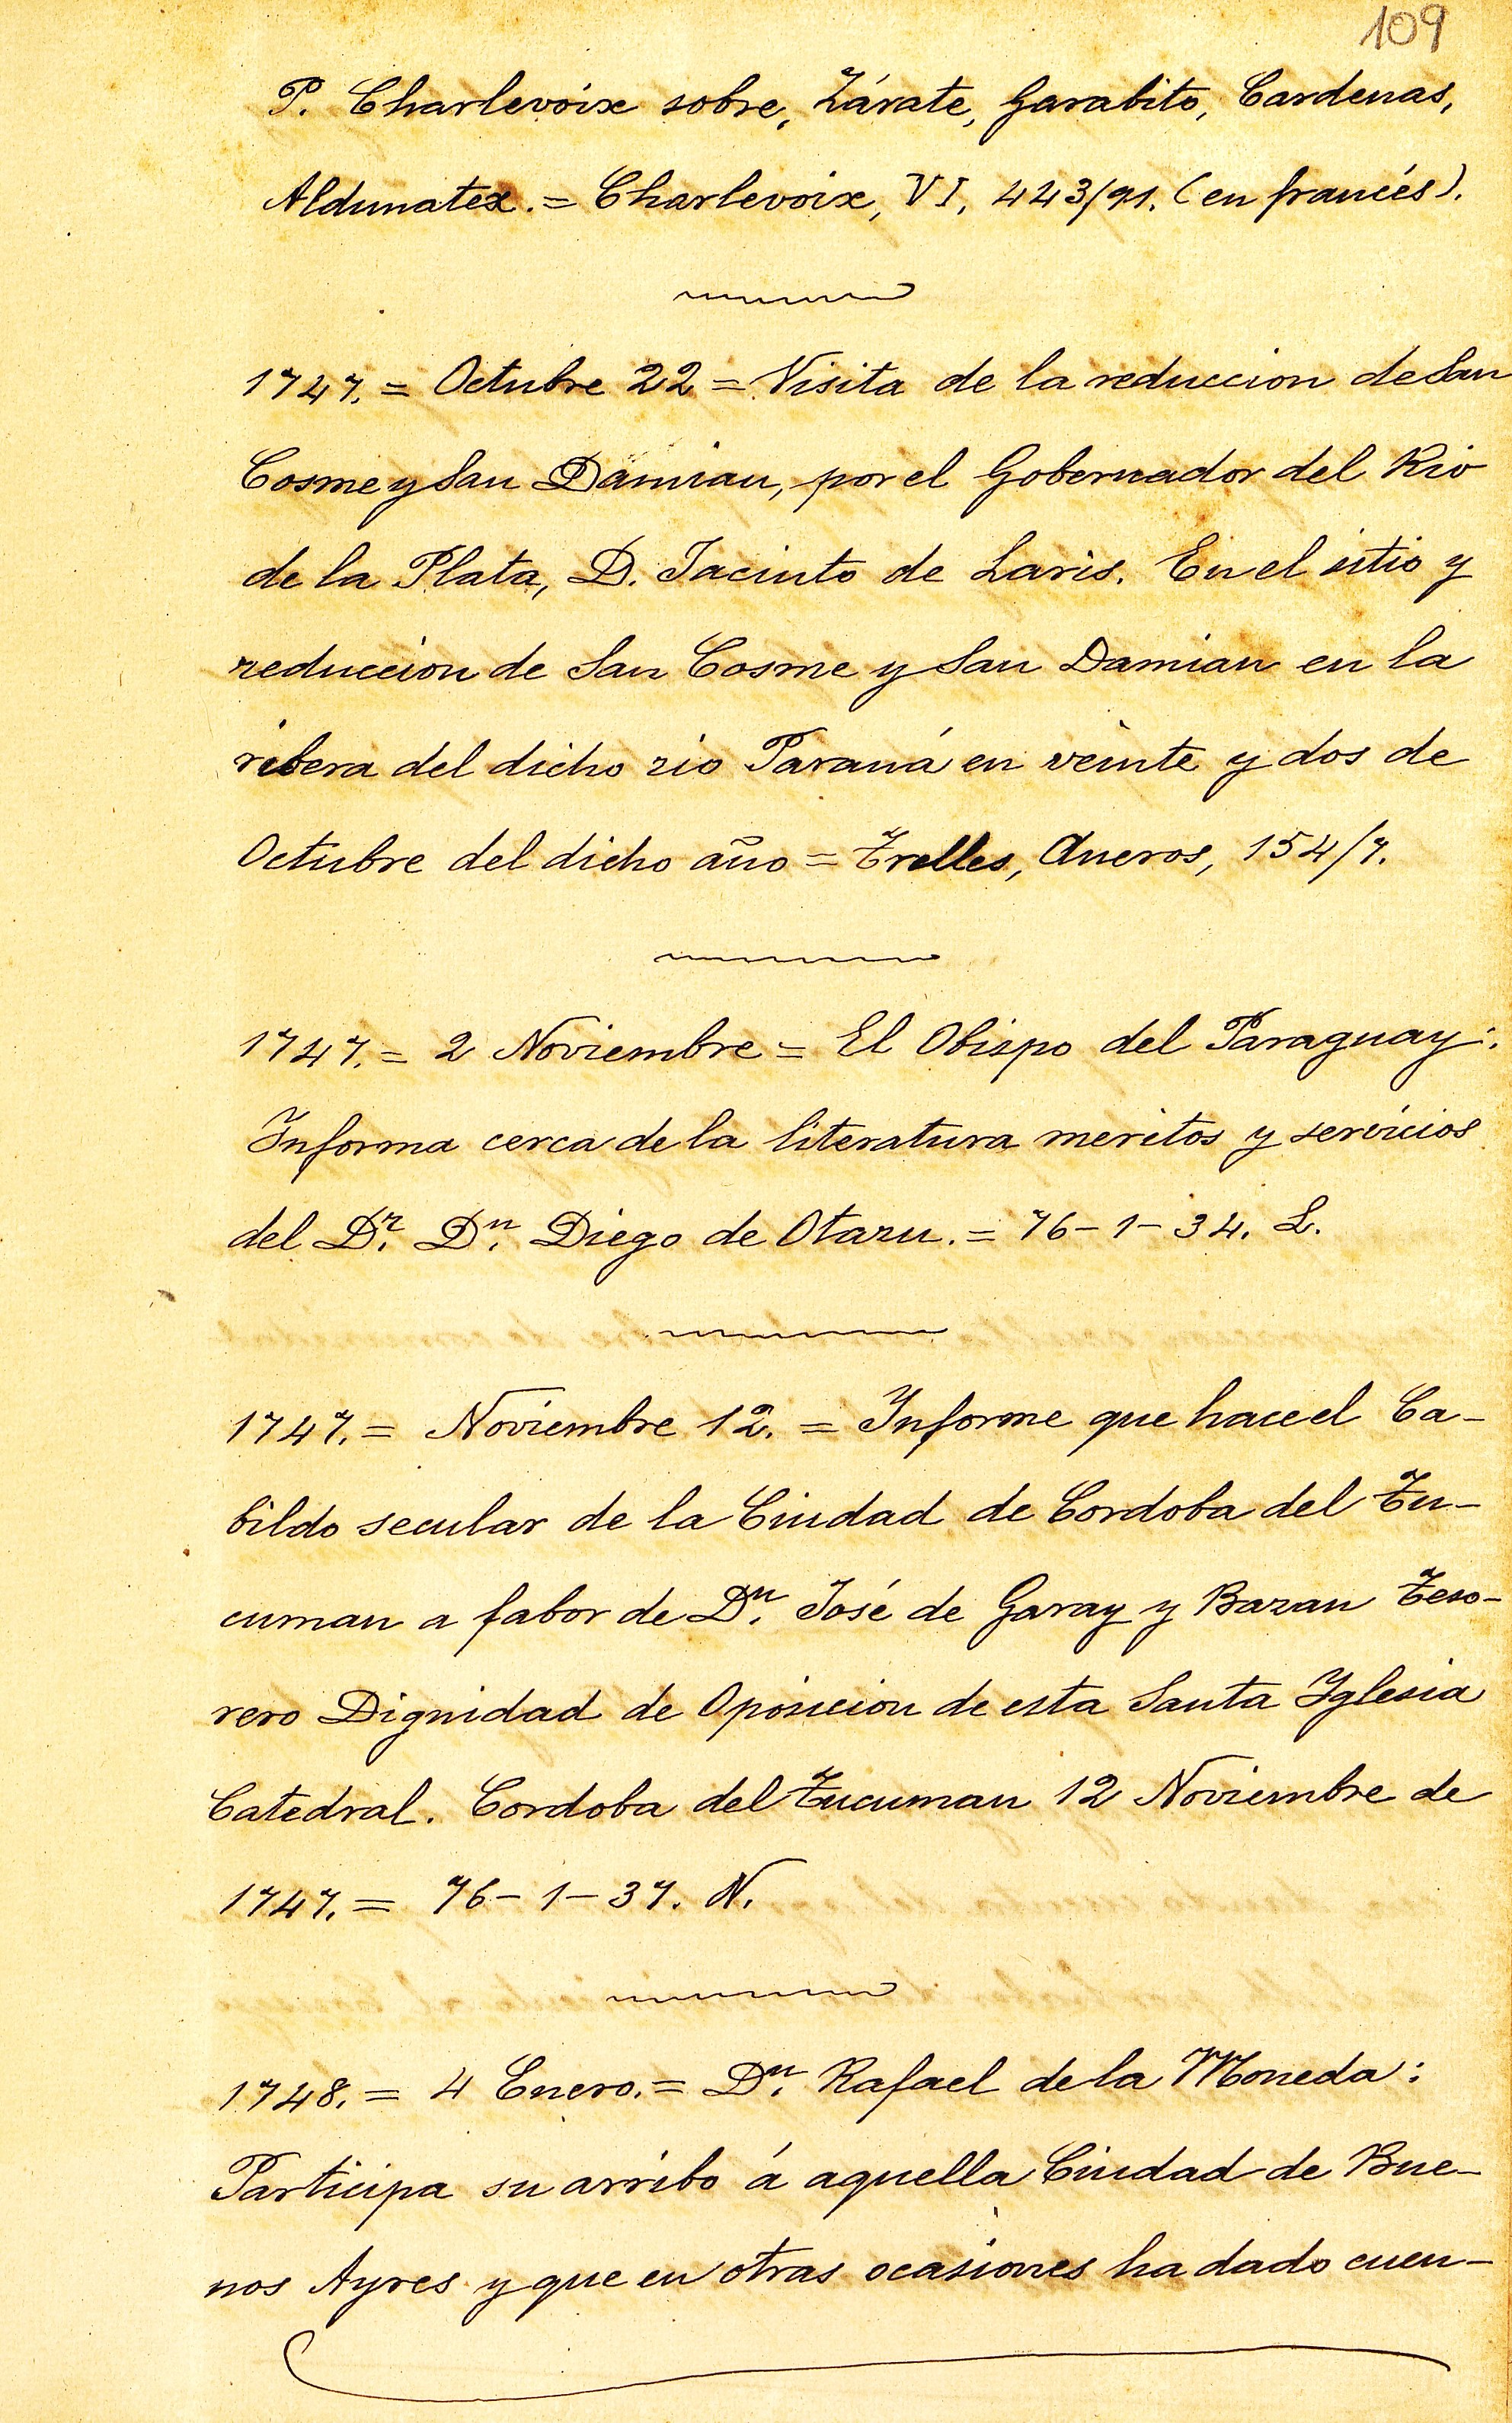 109
P. Charlevoix sobre, Zárate, Garabito, Cardenas,
Aldunatex. = Charlevoix, VI, 443/91. (en francés).
1747. = Octubre 22 = Visita de la reduccion de San
Cosme y San Damian, por el Gobernador del Rio
de la Plata, D. Jacinto de Laris. En el sitio y
reduccion de San Cosme y San Damian en la
ribera del dicho rio Paraná en veinte y dos de
Octubre del dicho año = Trelles, Aneros, 154/7.
1747. = 2 Noviembre = El Obispo del Paraguay:
Informa cerca de la literatura meritos y servicios
del Dr. Dn. Diego de Otazu. = 76-1-34. L.
1747. = Noviembre 12. = Informe que hace el Ca-
bildo secular de la Ciudad de Cordoba del Tu-
cuman a fabor de Dn. José de Garay y Bazan Teso-
rero Dignidad de Oposicion de esta Santa Yglesia
Catedral. Cordoba del Tucuman 12 Noviembre de
1747. = 76-1-37. N.
1748. = 4 Enero. = Dn. Rafael de la Moneda:
Participa su arribo á aquella Ciudad de Bue-
nos Ayres y que en otras ocasiones ha dado cuen-